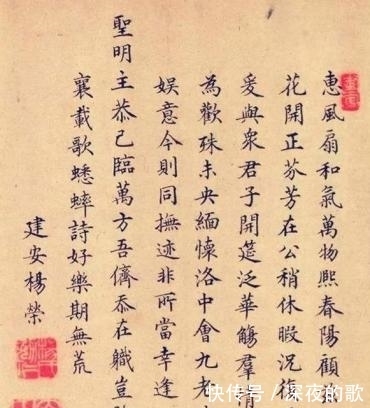 惠風扇和氣萬物熙春陽顧
花開正芬芳在公稍休暇況復
爰與衆君子開筵泛華觴羣
為歡殊未央緬懷洛中會九老
娱意今則同撫迹非所當幸逢
聖明主恭己臨萬方吾儕忝在職豈
襄載歌蟋蟀詩好樂期無荒
建安楊榮
快传号/深夜的歌